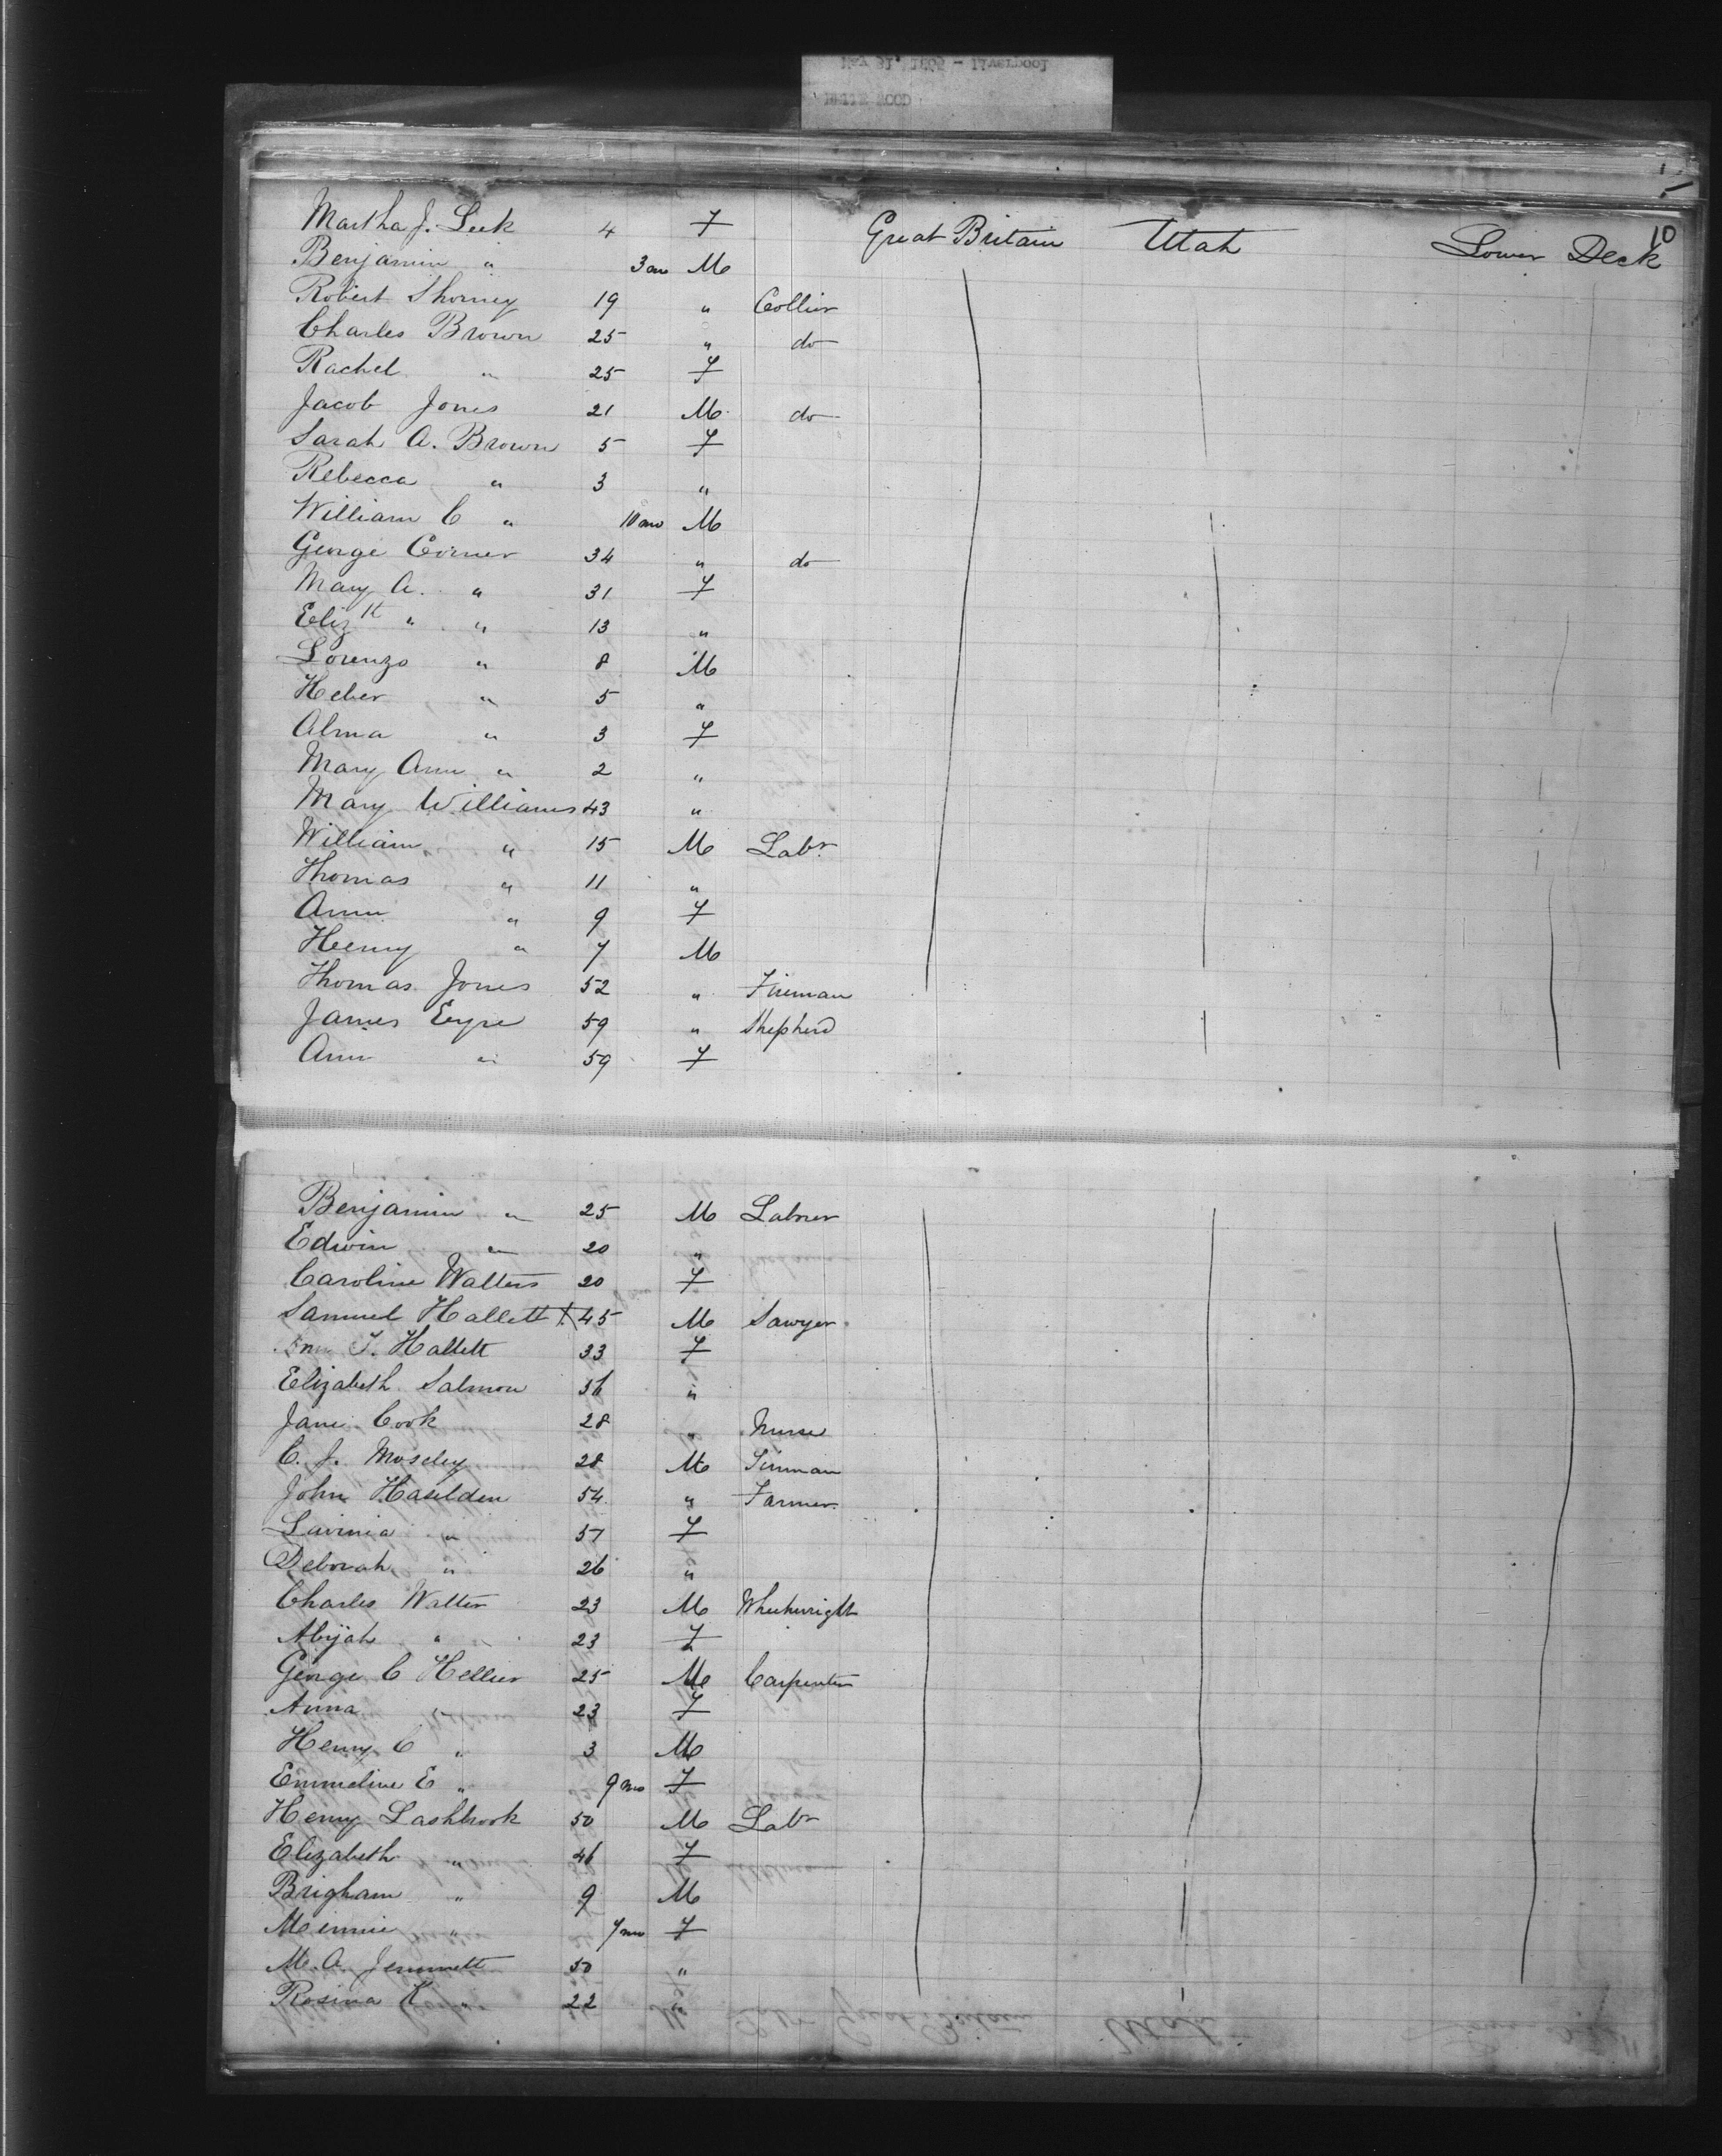 May 31, 1865 - Liverpool
BELLE WOOD
10
Martha J. Leek 4 F Great Britain Utah Lower Deck
Benjamin " 3 mo M
Robert Thorney 19 " Collier
Charles Brown 25 " do
Rachel " 25 F
Jacob Jones 21 M do
Sarah A. Brown 5 F
Rebecca " 3 "
William C " 10 mo M
George Corner 34 " do
Mary A. " 31 F
Elizth " " 13 "
Lorenzo " 8 M
Heber " 5 "
Alma " 3 F
Mary Ann " 2 "
Mary Williams 43 "
William " 15 M Labr
Thomas " 11 "
Ann " 9 F
Henry " 7 M
Thomas Jones 52 " Fireman
James Eyre 59 " Shepherd
Ann " 59 F
Benjamin " 25 M Laborer
Edwin " 20 "
Caroline Walters 20 F
Samuel Hallett 45 M Sawyer
T. Hallett 33 F
Elizabeth Salmon 36 "
Jane Cook 28 " Nurse
C. J. Moseley 28 M Tinman
John Haselden 54 " Farmer
Lavinia " 57 F
Deborah " 26 "
Charles Walter 23 M Wheelwright
Abijah " 23 F
George C Hellier 25 M Carpenter
Anna " 23 F
Henry C " 3 M
Emmeline E " 9 mo F
Henry Lashbrook 50 M Labr
Elizabeth " 46 F
Brigham " 9 M
Minnie " 7 mo F
M. A. Jemmett 50 "
Rosina K " 22 "